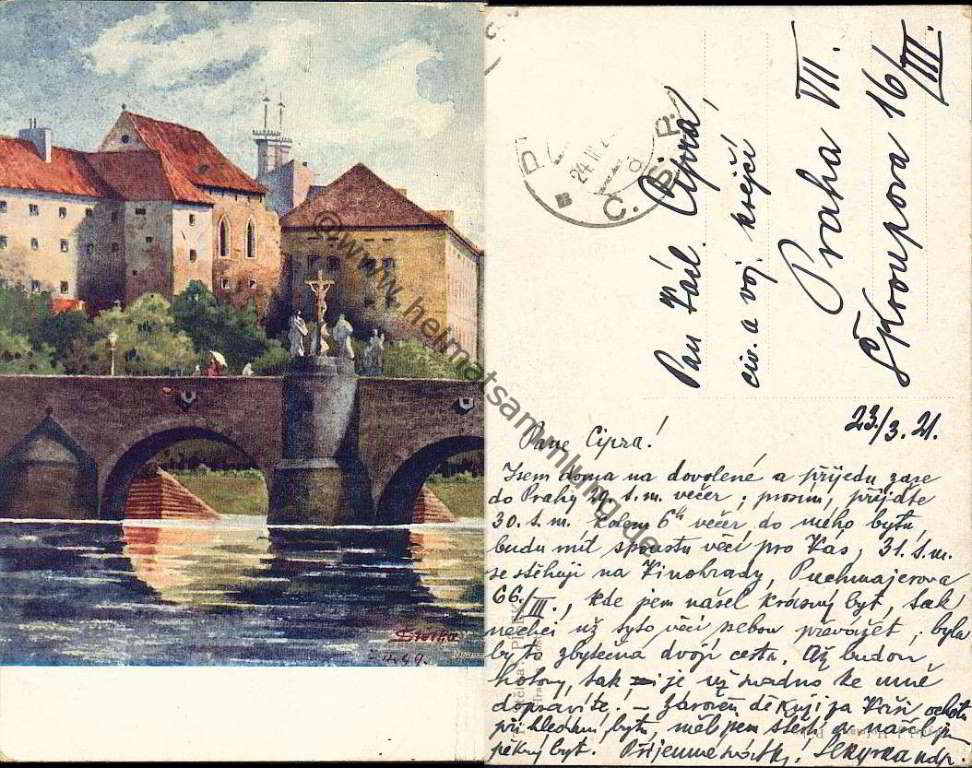 Pan Václ. Cipra,
civ. a voj. krejčí
Praha VII.
Škroupova 16/III.
23./3. 21.
Pane Cipra!
Jsem doma na dovolené a přijedu zase
do Prahy 29. t. m. večer; prosím, přijďte
30. t. m. kolem 6té večer do mého bytu,
budu mít spoustu věcí pro Vás, 31. t. m.
se stěhuji na Vinohrady, Puchmajerova
66./III., kde jsem našel krásný byt, tak
nechci už tyto věci sebou převážet, byla
by to zbytečná dvojí cesta. Až budou
hotovy, tak je už snadno ke mně
dopravíte! – Zároveň děkuji za Vaši ochotu
při hledání bytu, měl jsem štěstí, že našel jsem
pěkný byt. Příjemné svátky!
C. S. P.
24. III. 2
© www.heimatsammlung.de